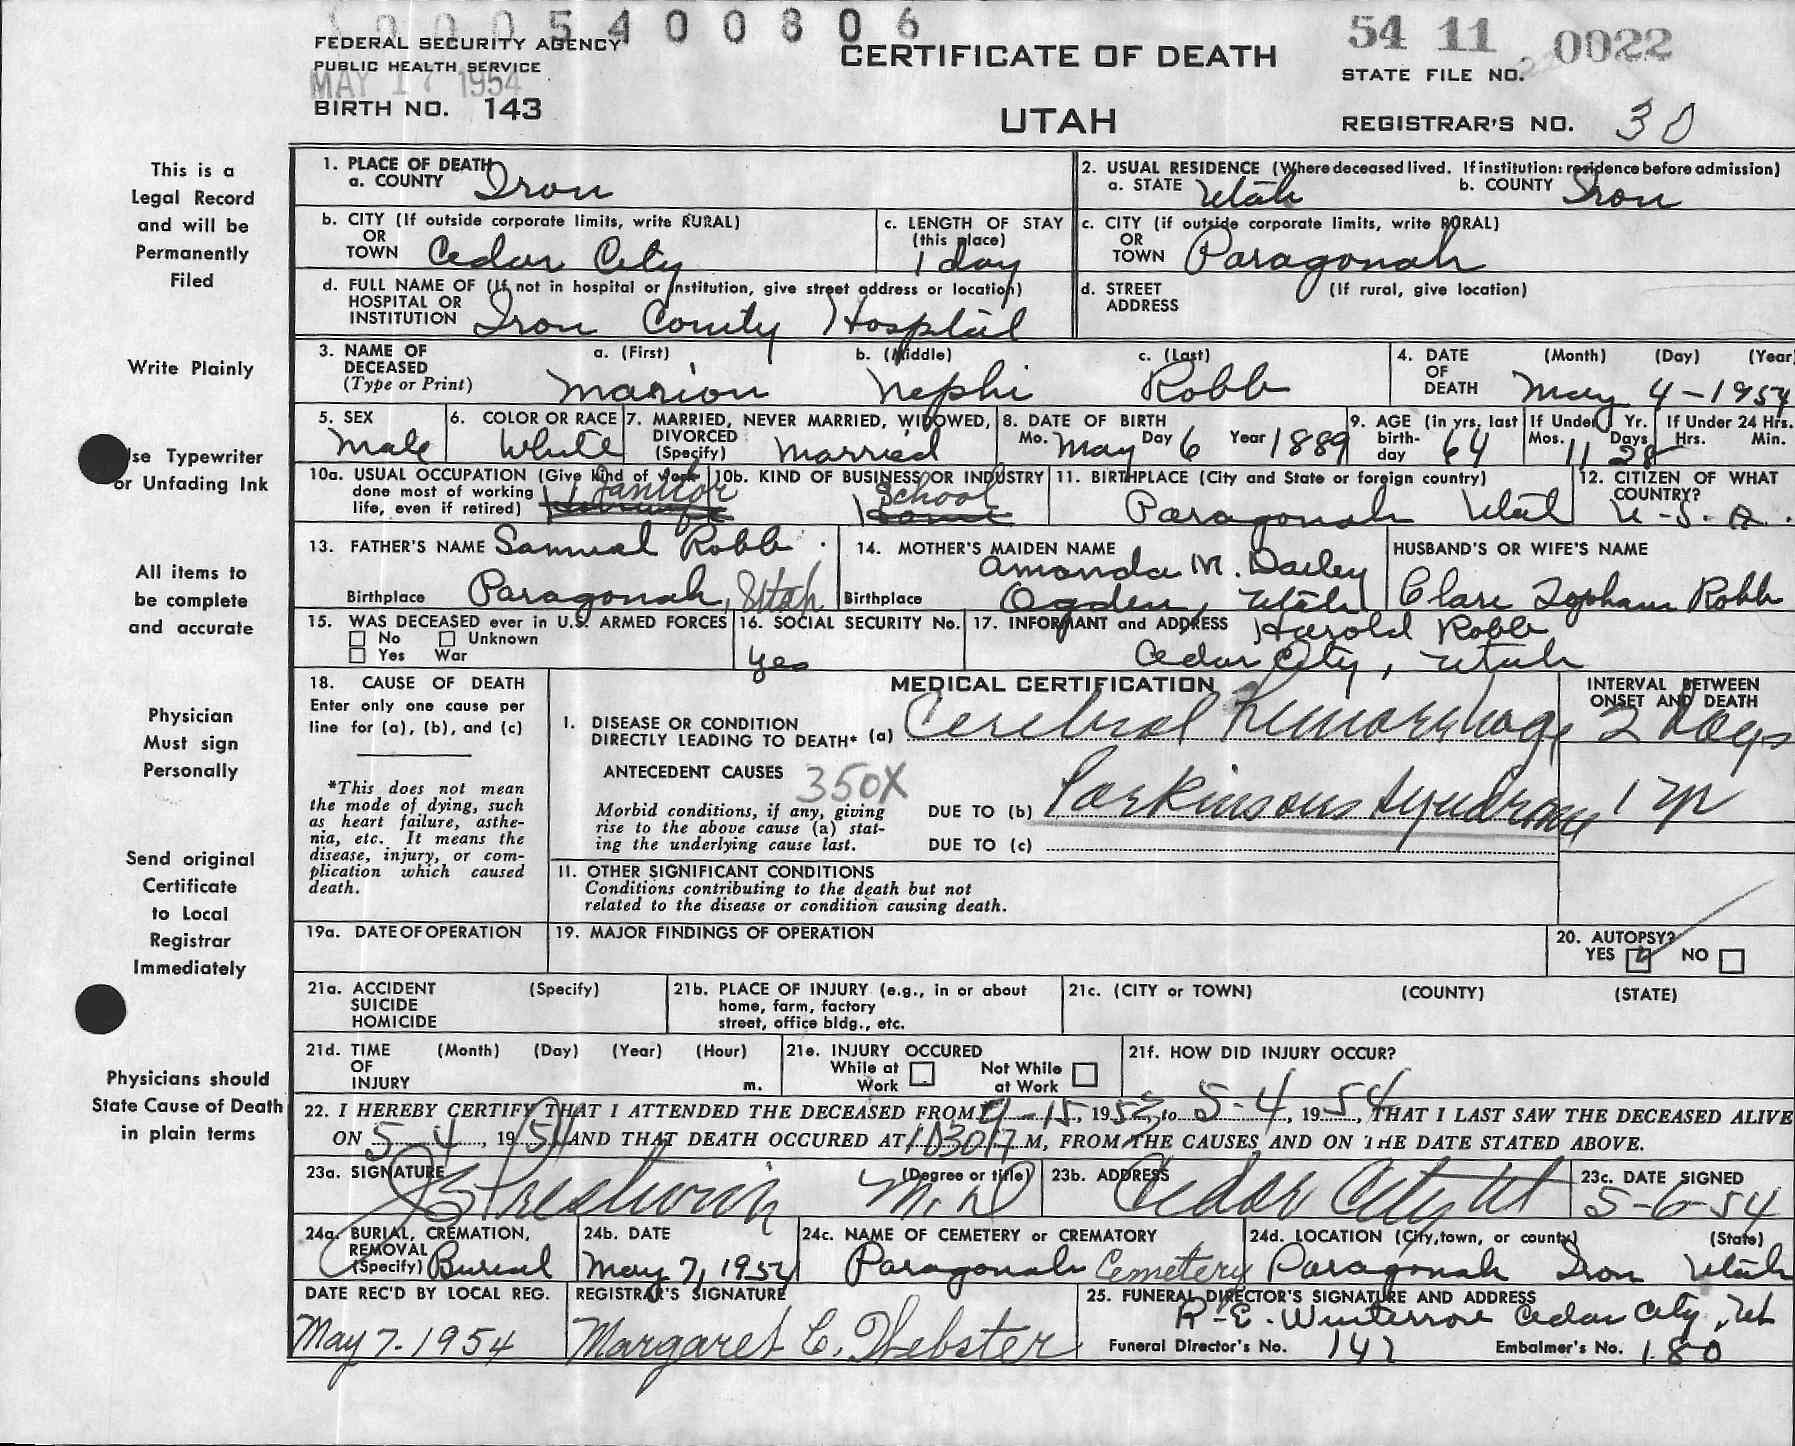 0005400806
FEDERAL SECURITY AGENCY
PUBLIC HEALTH SERVICE
MAY 17 1954
BIRTH NO. 143
CERTIFICATE OF DEATH
UTAH
54 11 0022
STATE FILE NO.
REGISTRAR'S NO. 30
This is a
Legal Record
and will be
Permanently
Filed
Write Plainly
Use Typewriter
or Unfading Ink
All items to
be complete
and accurate
Physician
Must sign
Personally
Send original
Certificate
to Local
Registrar
Immediately
Physicians should
State Cause of Death
in plain terms
1. PLACE OF DEATH
a. COUNTY Iron
2. USUAL RESIDENCE (Where deceased lived. If institution: residence before admission)
a. STATE Utah b. COUNTY Iron
b. CITY (If outside corporate limits, write RURAL)
OR
TOWN Cedar City
c. LENGTH OF STAY
(this place)
1 day
c. CITY (if outside corporate limits, write RURAL)
OR
TOWN Paragonah
d. FULL NAME OF (If not in hospital or institution, give street address or location)
HOSPITAL OR
INSTITUTION Iron County Hospital
d. STREET (If rural, give location)
ADDRESS
3. NAME OF DECEASED
(Type or Print)
a. (First) b. (Middle) c. (Last)
Marion Nephi Robb
4. DATE OF DEATH (Month) (Day) (Year)
May 4-1954
5. SEX
Male
6. COLOR OR RACE
White
7. MARRIED, NEVER MARRIED, WIDOWED,
DIVORCED
(Specify) Married
8. DATE OF BIRTH
Mo. May Day 6 Year 1889
9. AGE (in yrs. last birth-day 64
If Under 1 Yr. Mos. 11 Days 28
If Under 24 Hrs. Hrs. Min.
10a. USUAL OCCUPATION (Give kind of work
done most of working
life, even if retired) Janitor
10b. KIND OF BUSINESS OR INDUSTRY
School
Home
11. BIRTHPLACE (City and State or foreign country)
Paragonah Utah
12. CITIZEN OF WHAT
COUNTRY?
U-S. A.
13. FATHER'S NAME Samuel Robb
Birthplace Paragonah, Utah
14. MOTHER'S MAIDEN NAME
Amanda M. Dailey
Birthplace Ogden, Utah
HUSBAND'S OR WIFE'S NAME
Clare Topham Robb
15. WAS DECEASED ever in U.S. ARMED FORCES
No Unknown
Yes War
16. SOCIAL SECURITY No.
yes
17. INFORMANT and ADDRESS Harold Robb
Cedar City, Utah
18. CAUSE OF DEATH
Enter only one cause per
line for (a), (b), and (c)
*This does not mean
the mode of dying, such
as heart failure, asthe-
nia, etc. It means the
disease, injury, or com-
plication which caused
death.
MEDICAL CERTIFICATION
INTERVAL BETWEEN
ONSET AND DEATH
I. DISEASE OR CONDITION
DIRECTLY LEADING TO DEATH* (a) Cerebral hemorrhage 2 days
ANTECEDENT CAUSES 350X
Morbid conditions, if any, giving
rise to the above cause (a) stat-
ing the underlying cause last.
DUE TO (b) Parkinsons syndrome 1 yr
DUE TO (c)
II. OTHER SIGNIFICANT CONDITIONS
Conditions contributing to the death but not
related to the disease or condition causing death.
19a. DATE OF OPERATION
19. MAJOR FINDINGS OF OPERATION
20. AUTOPSY?
YES NO
21a. ACCIDENT (Specify)
SUICIDE
HOMICIDE
21b. PLACE OF INJURY (e.g., in or about
home, farm, factory
street, office bldg., etc.
21c. (CITY or TOWN) (COUNTY) (STATE)
21d. TIME (Month) (Day) (Year) (Hour)
OF
INJURY m.
21e. INJURY OCCURED
While at Work Not While at Work
21f. HOW DID INJURY OCCUR?
22. I HEREBY CERTIFY THAT I ATTENDED THE DECEASED FROM -15, 1953, to 5-4, 1954, THAT I LAST SAW THE DECEASED ALIVE
ON 5 4, 1954 AND THAT DEATH OCCURED AT 1030 P M, FROM THE CAUSES AND ON THE DATE STATED ABOVE.
23a. SIGNATURE (Degree or title)
Prestwich M.D
23b. ADDRESS
Cedar City Ut
23c. DATE SIGNED
5-6-54
24a. BURIAL, CREMATION,
REMOVAL
(Specify) Burial
24b. DATE
May 7, 1954
24c. NAME OF CEMETERY or CREMATORY
Paragonah Cemetery
24d. LOCATION (City, town, or county) (State)
Paragonah Iron Utah
DATE REC'D BY LOCAL REG.
May 7. 1954
REGISTRAR'S SIGNATURE
Margaret C. Webster
25. FUNERAL DIRECTOR'S SIGNATURE AND ADDRESS
R-E. Winterrose Cedar City, Ut
Funeral Director's No. 142 Embalmer's No. 180